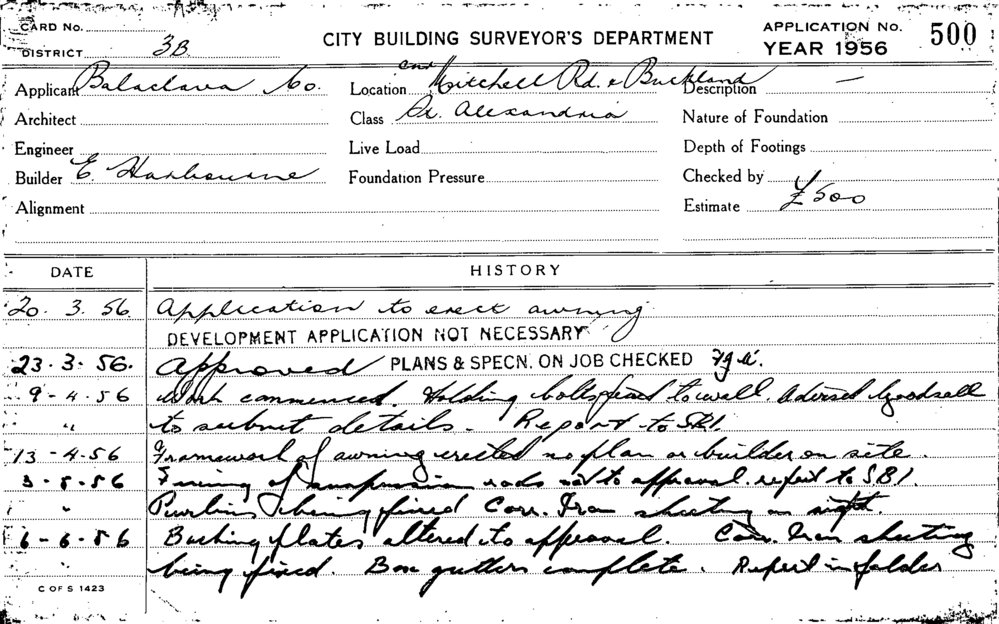 CARD No.
DISTRICT 3B
CITY BUILDING SURVEYOR'S DEPARTMENT
APPLICATION No. 500
YEAR 1956
Applicant Balaclava Co.
Location cnr Mitchell Rd. & Buckland
Description —
Architect
Class St. Alexandria
Nature of Foundation
Engineer
Live Load
Depth of Footings
Builder E. Harbourne
Foundation Pressure
Checked by
Alignment
Estimate £500
DATE HISTORY
20. 3. 56. Application to erect awning
DEVELOPMENT APPLICATION NOT NECESSARY
23.3.56. Approved PLANS & SPECN. ON JOB CHECKED
9-4-56 Work commenced. Holding bolts fixed to wall. Advised Goodsell
" to submit details. Report to SBI.
13-4-56 Framework of awning erected no plan or builder on site.
3-5-56 Fixing of suspension rods not to approval. report to SBI.
" Purlins being fixed Corr. Iron sheeting on
6-6-56 plates altered to approval. Corr. Iron sheeting
" being fixed. Box gutters complete. Report in folder
C OF S 1423